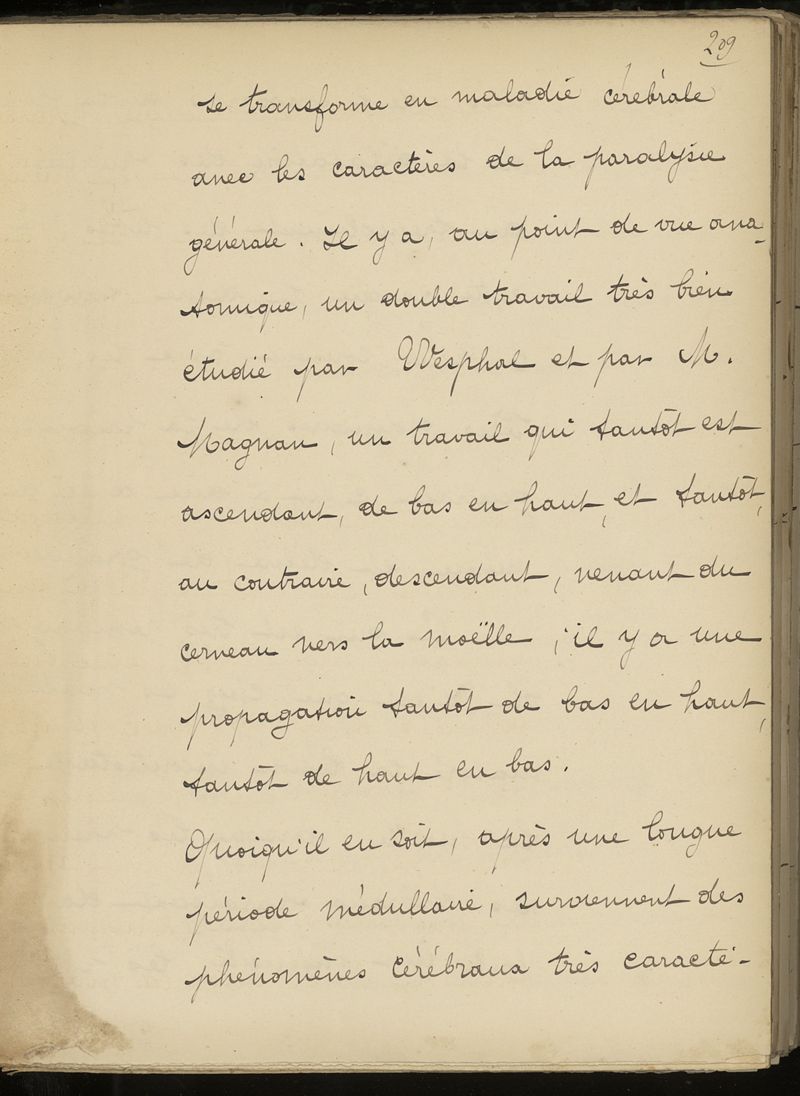 209
se transforme en maladie cérébrale
avec les caractères de la paralysie
générale. Il y a, au point de vue ana-
tomique, un double travail très bien
étudié par Wesphal et par M.
Magnan, un travail qui tantôt est
ascendant, de bas en haut, et tantôt,
au contraire, descendant, venant du
cerveau vers la moëlle ; il y a une
propagation tantôt de bas en haut,
tantôt de haut en bas.
Quoiqu'il en soit, après une longue
période médullaire, surviennent des
phénomènes cérébraux très caracté-